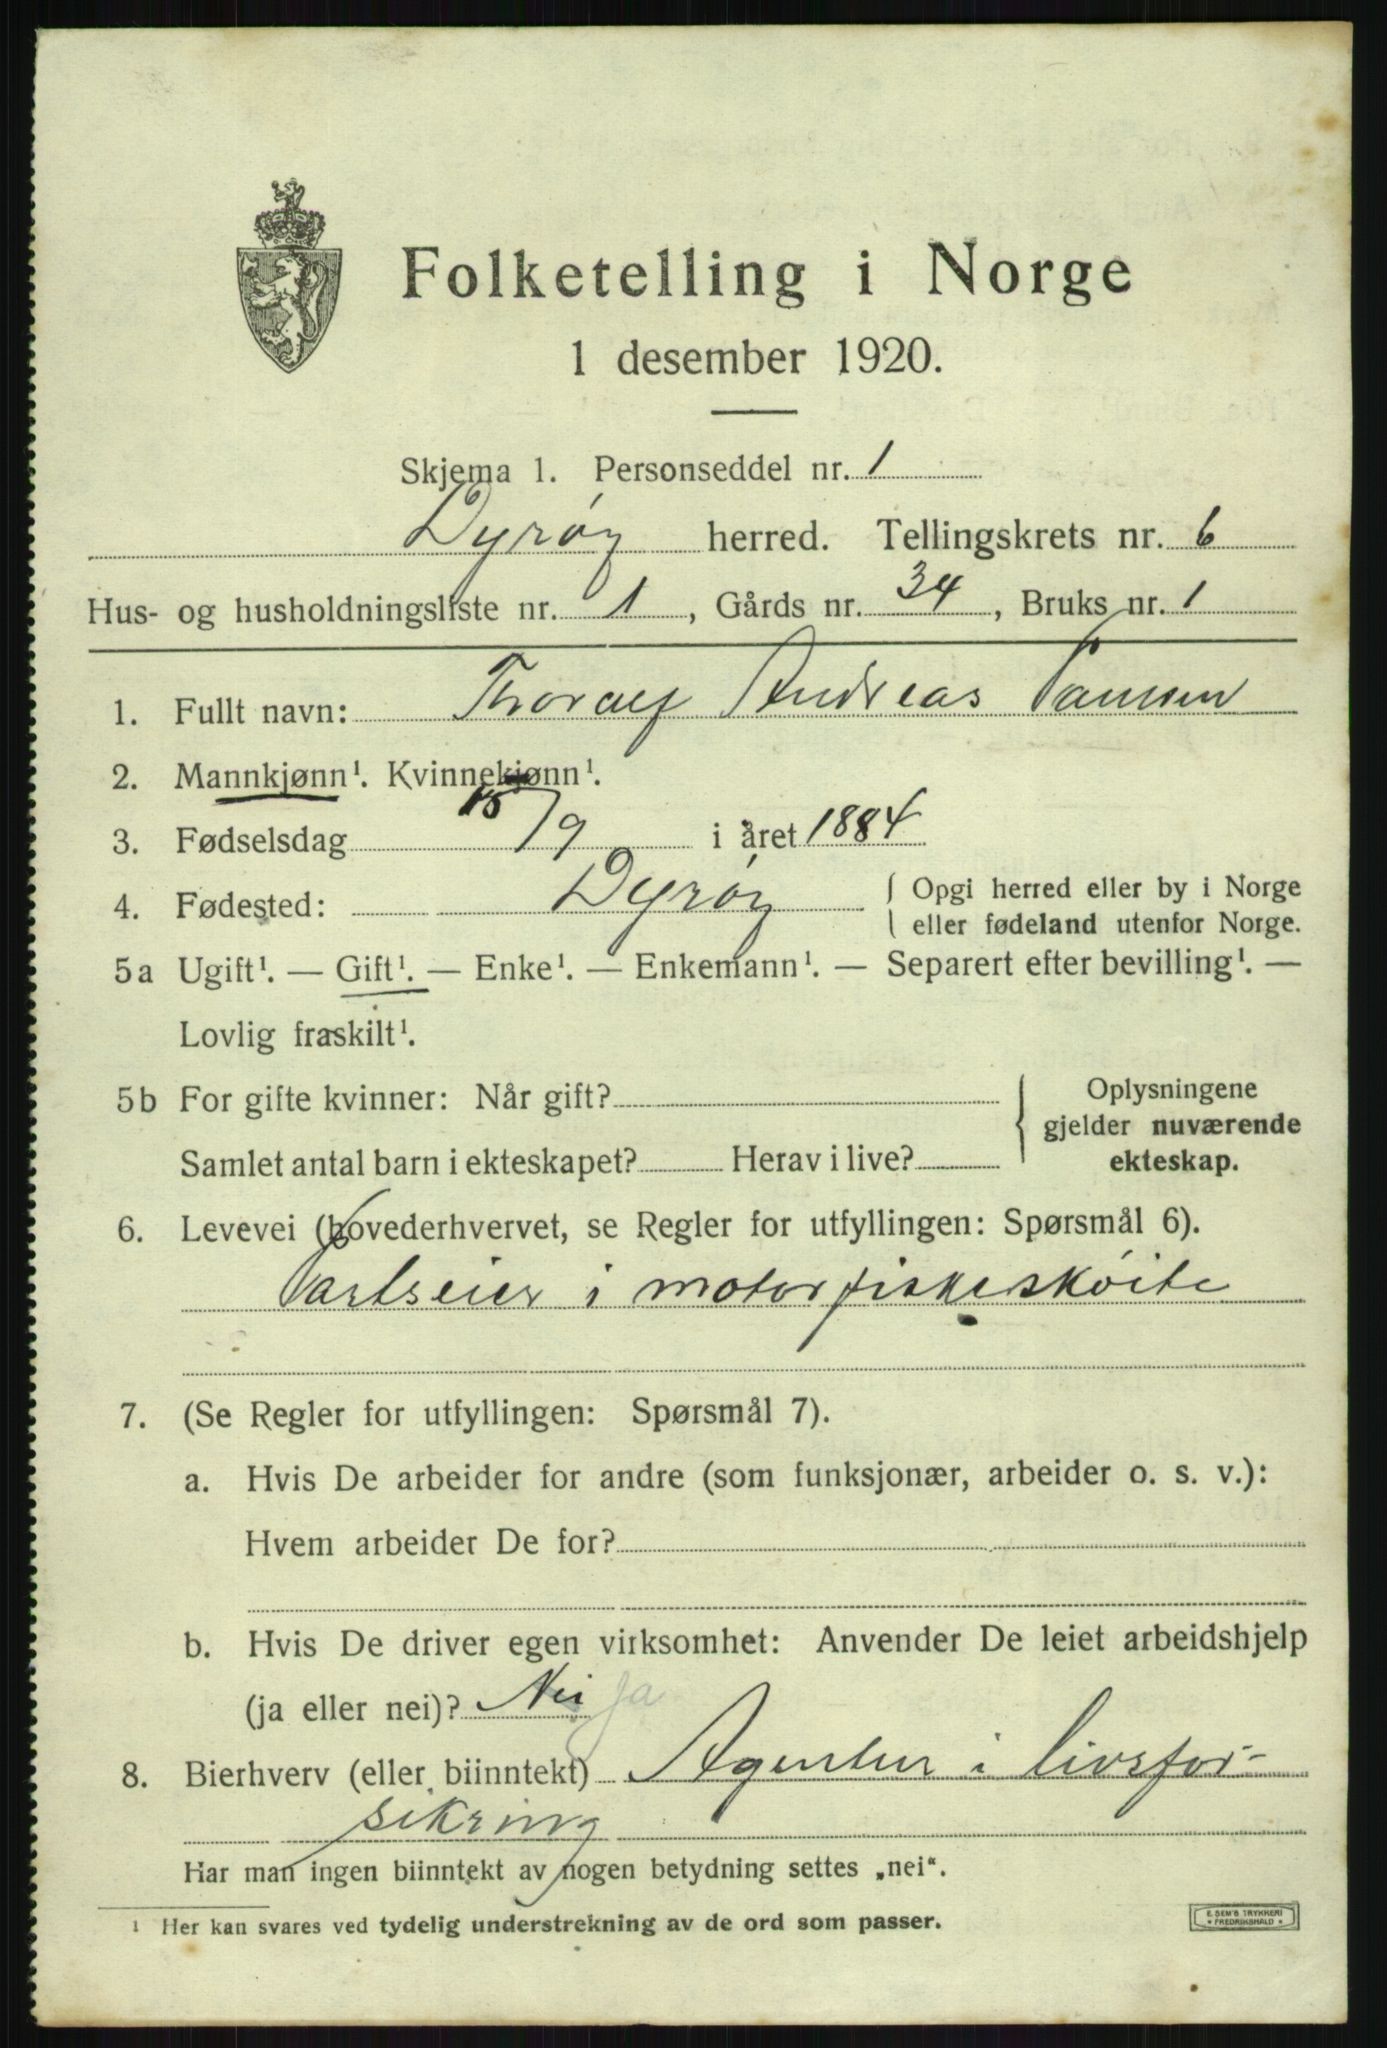 Folketelling i Norge
1 desember 1920.
Skjema 1. Personseddel nr. 1
Dyrøy herred. Tellingskrets nr. 6
Hus- og husholdningsliste nr. 1, Gårds nr. 34, Bruks nr. 1
1. Fullt navn: Thoralf Andreas Paulsen
2. Mannkjønn¹. Kvinnekjønn¹.
3. Fødselsdag 15/9 i året 1884
4. Fødested: Dyrøy { Opgi herred eller by i Norge
eller fødeland utenfor Norge.
5a Ugift¹. — Gift¹. — Enke¹. — Enkemann¹. — Separert efter bevilling¹. —
Lovlig fraskilt¹.
5b For gifte kvinner: Når gift? } Oplysningene
gjelder nuværende
Samlet antal barn i ekteskapet? Herav i live? ekteskap.
6. Levevei (hovederhvervet, se Regler for utfyllingen: Spørsmål 6).
Partseier i motorfiskeskøite
7. (Se Regler for utfyllingen: Spørsmål 7).
a. Hvis De arbeider for andre (som funksjonær, arbeider o. s. v.):
Hvem arbeider De for?
b. Hvis De driver egen virksomhet: Anvender De leiet arbeidshjelp
(ja eller nei)? Nei ja
8. Bierhverv (eller biinntekt) Agentur i livsfor-
sikring
Har man ingen biinntekt av nogen betydning settes „nei“.
¹ Her kan svares ved tydelig understrekning av de ord som passer.
E. SEM'S TRYKKERI
* FREDRIKSHALD *